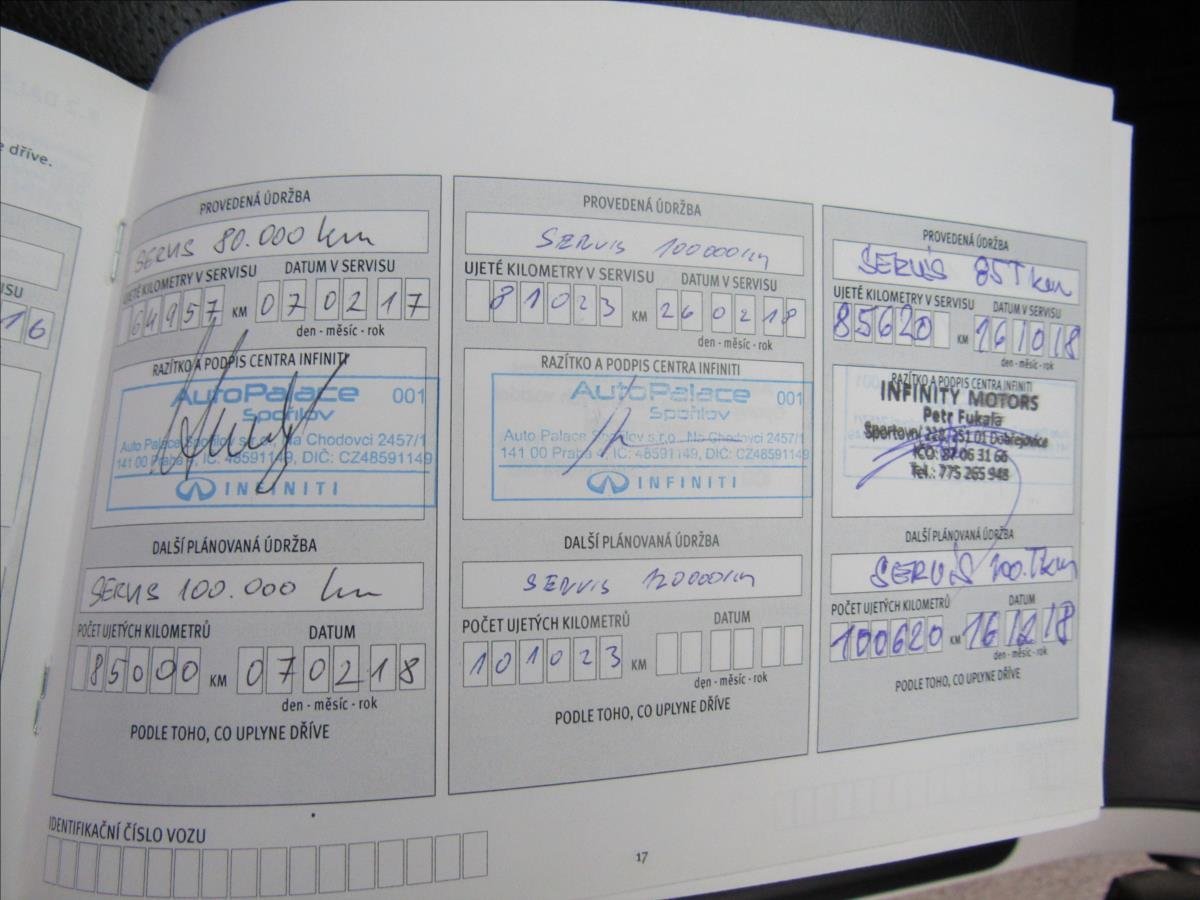 e dříve.
ISU
16
PROVEDENÁ ÚDRŽBA
SERVIS 80.000 km
UJETÉ KILOMETRY V SERVISU DATUM V SERVISU
64957 KM 070217
den - měsíc - rok
RAZÍTKO A PODPIS CENTRA INFINITI
AutoPalace 001
Spořilov
Auto Palace Spořilov s.r.o., Na Chodovci 2457/1
141 00 Praha 4, IČ: 48591149, DIČ: CZ48591149
INFINITI
DALŠÍ PLÁNOVANÁ ÚDRŽBA
SERVIS 100.000 km
POČET UJETÝCH KILOMETRŮ DATUM
85000 KM 070218
den - měsíc - rok
PODLE TOHO, CO UPLYNE DŘÍVE
PROVEDENÁ ÚDRŽBA
SERVIS 100000km
UJETÉ KILOMETRY V SERVISU DATUM V SERVISU
81023 KM 260218
den - měsíc - rok
RAZÍTKO A PODPIS CENTRA INFINITI
AutoPalace 001
Spořilov
Auto Palace Spořilov s.r.o., Na Chodovci 2457/1
141 00 Praha 4, IČ: 48591149, DIČ: CZ48591149
INFINITI
DALŠÍ PLÁNOVANÁ ÚDRŽBA
SERVIS 120000km
POČET UJETÝCH KILOMETRŮ DATUM
101023 KM
den - měsíc - rok
PODLE TOHO, CO UPLYNE DŘÍVE
PROVEDENÁ ÚDRŽBA
SERVIS 85T km
UJETÉ KILOMETRY V SERVISU DATUM V SERVISU
85620 KM 161018
den - měsíc - rok
RAZÍTKO A PODPIS CENTRA INFINITI
INFINITY MOTORS
Petr Fukala
Sportovní 228, 251 01 Dobřejovice
IČO: 87 06 31 66
Tel.: 775 265 948
DALŠÍ PLÁNOVANÁ ÚDRŽBA
SERVIS 100.Tkm
POČET UJETÝCH KILOMETRŮ DATUM
100620 KM 161218
den - měsíc - rok
PODLE TOHO, CO UPLYNE DŘÍVE
IDENTIFIKAČNÍ ČÍSLO VOZU
17